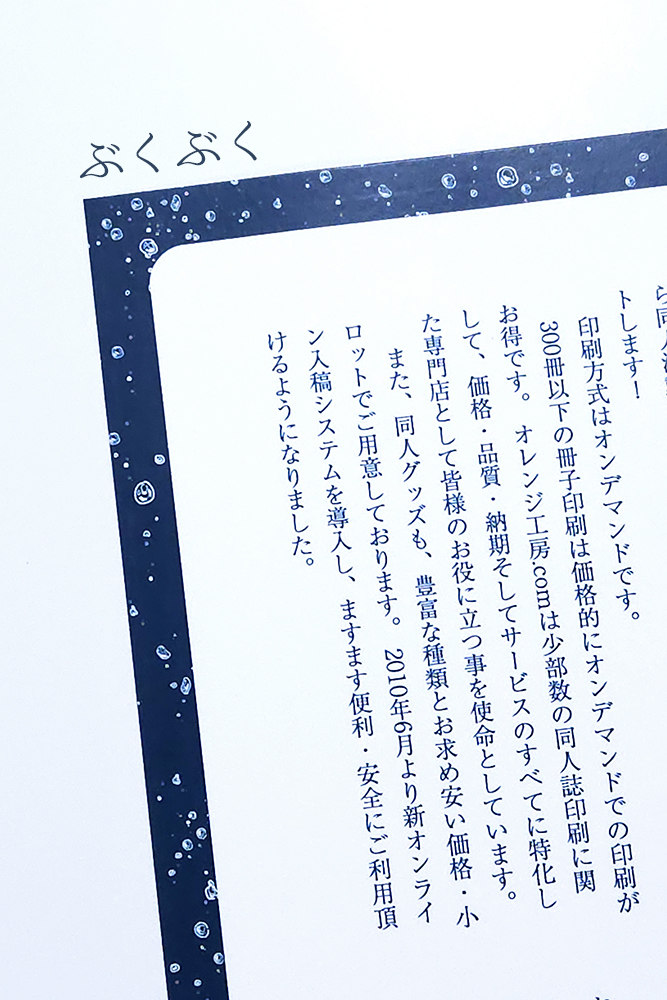 ぶくぶく
トします！
印刷方式はオンデマンドです。
300冊以下の冊子印刷は価格的にオンデマンドでの印刷が
お得です。オレンジ工房.comは少部数の同人誌印刷に関
して、価格・品質・納期そしてサービスのすべてに特化し
た専門店として皆様のお役に立つ事を使命としています。
また、同人グッズも、豊富な種類とお求め安い価格・小
ロットでご用意しております。2010年6月より新オンライ
ン入稿システムを導入し、ますます便利・安全にご利用頂
けるようになりました。